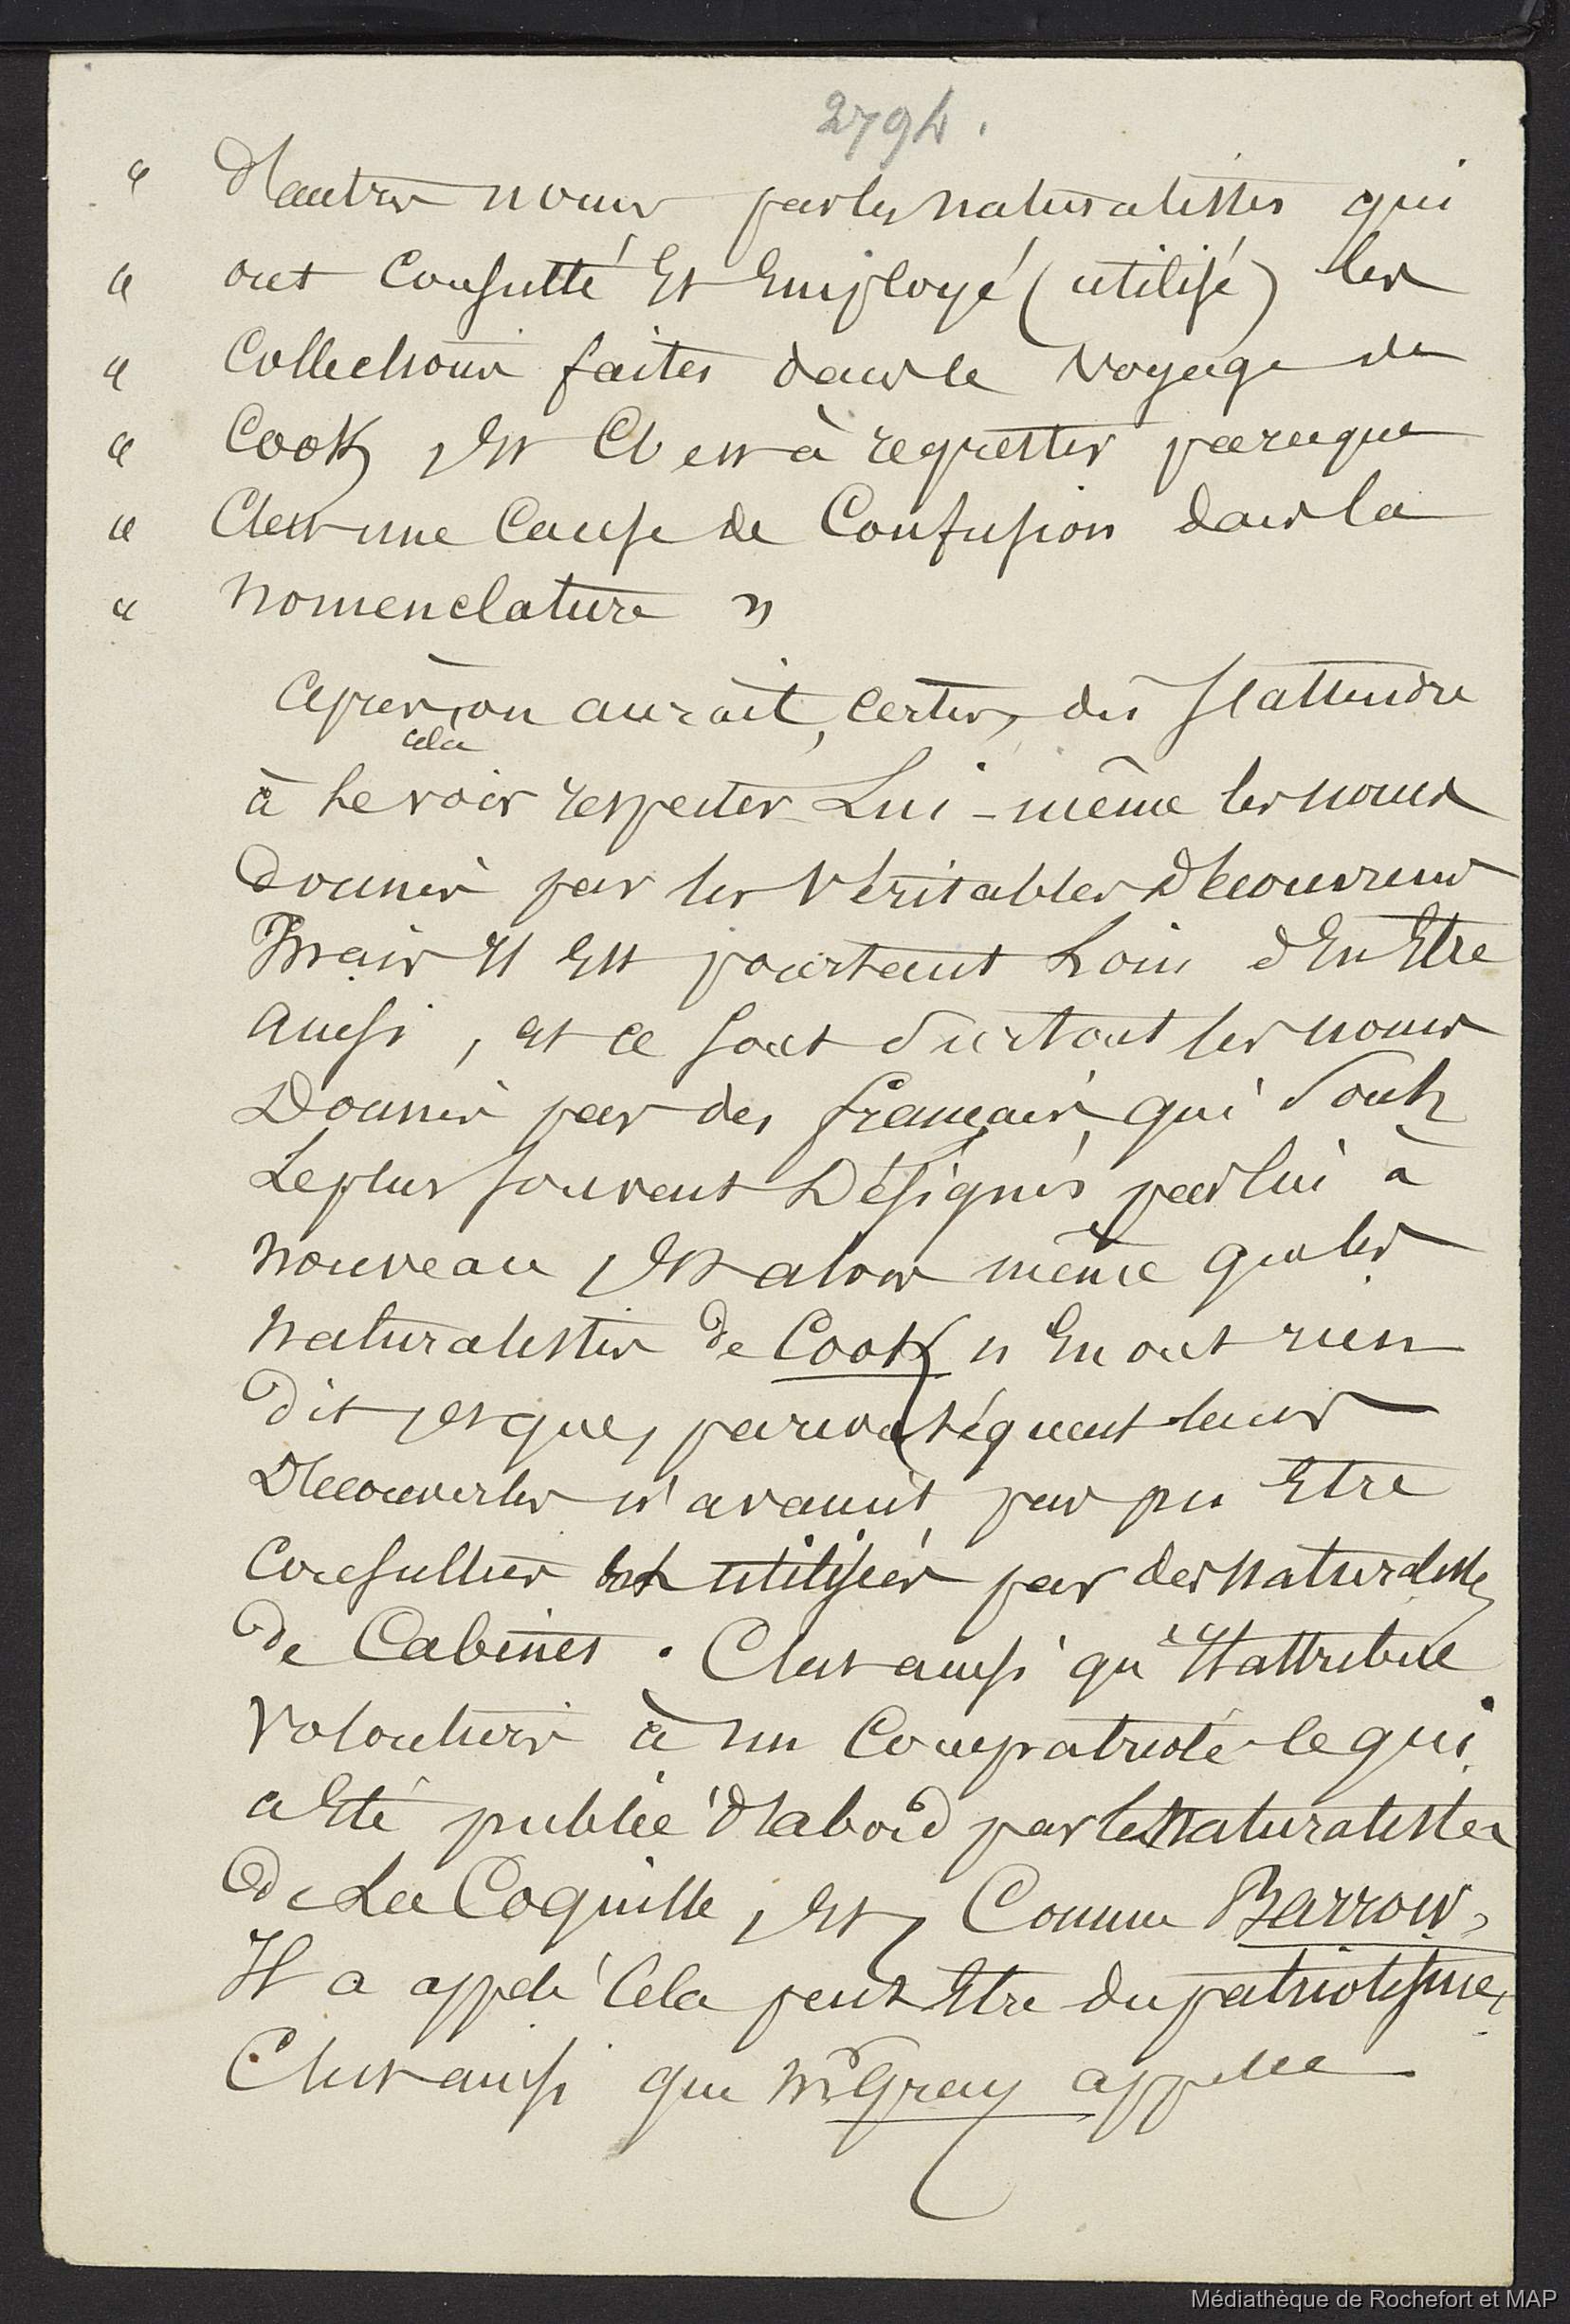 2794.
" d'autres noms par les naturalistes qui
" ont consulté et employé (utilisé) les
" collections faites dans le voyage de
" Cook, et c'est à regretter parceque
" c'est une cause de confusion dans la
" nomenclature "
après cela, on aurait, certes, dû s'attendre
à le voir respecter lui-même les noms
donnés par les véritables découvreurs
Mais il est pourtant loin d'en être
ainsi, et ce sont surtout les noms
Donnés par des français, qui sont
Le plus souvent Désignés par lui à
nouveau, et alors même que les
naturalistes de Cook n'en ont rien
dit, et que, par conséquent leurs
Découvertes n'avaient pas pu être
consultées et utilisées par des naturalistes
de Cabinet. C'est ainsi qu'il attribue
volontiers à un compatriote ce qui
a été publié d'abord par les naturalistes
de La Coquille, et, Comme Barrow,
Il a appelé cela peut être du patriotisme,
C'est ainsi que Mr Gray appelle
Médiathèque de Rochefort et MAP